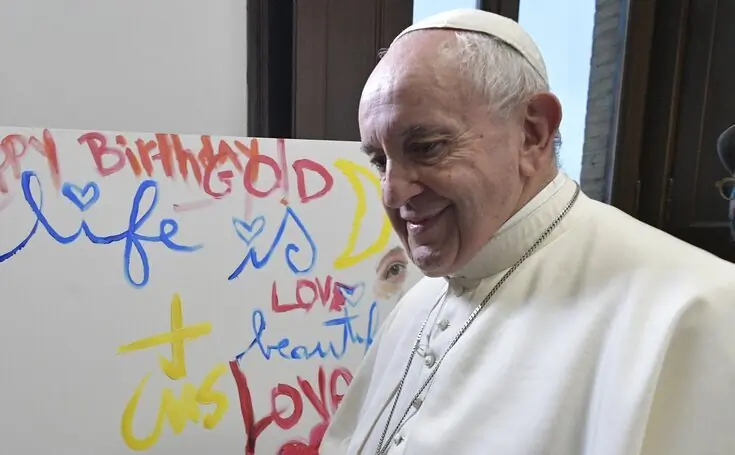 Happy Birthday
GOD
life is
LOVE
beautiful
CMS
LOVE